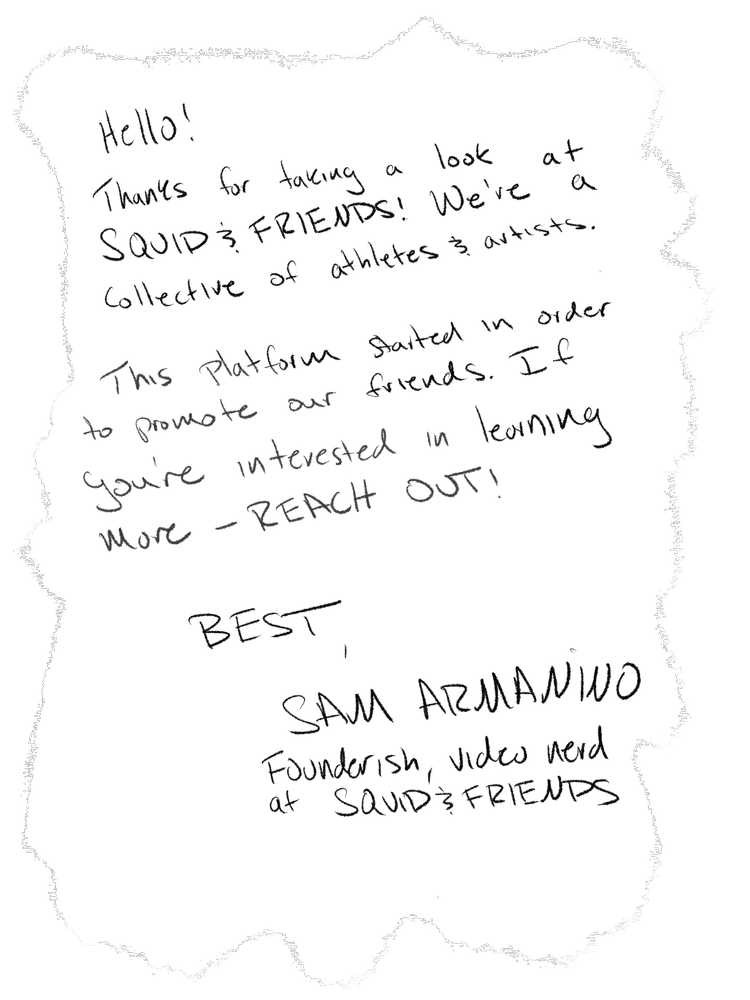 Hello!
Thanks for taking a look at
SQUID & FRIENDS! We're a
Collective of athletes & artists.
This Platform started in order
to promote our friends. If
you're interested in learning
more – REACH OUT!
BEST,
SAM ARMANINO
Founderish, video nerd
at SQUID & FRIENDS